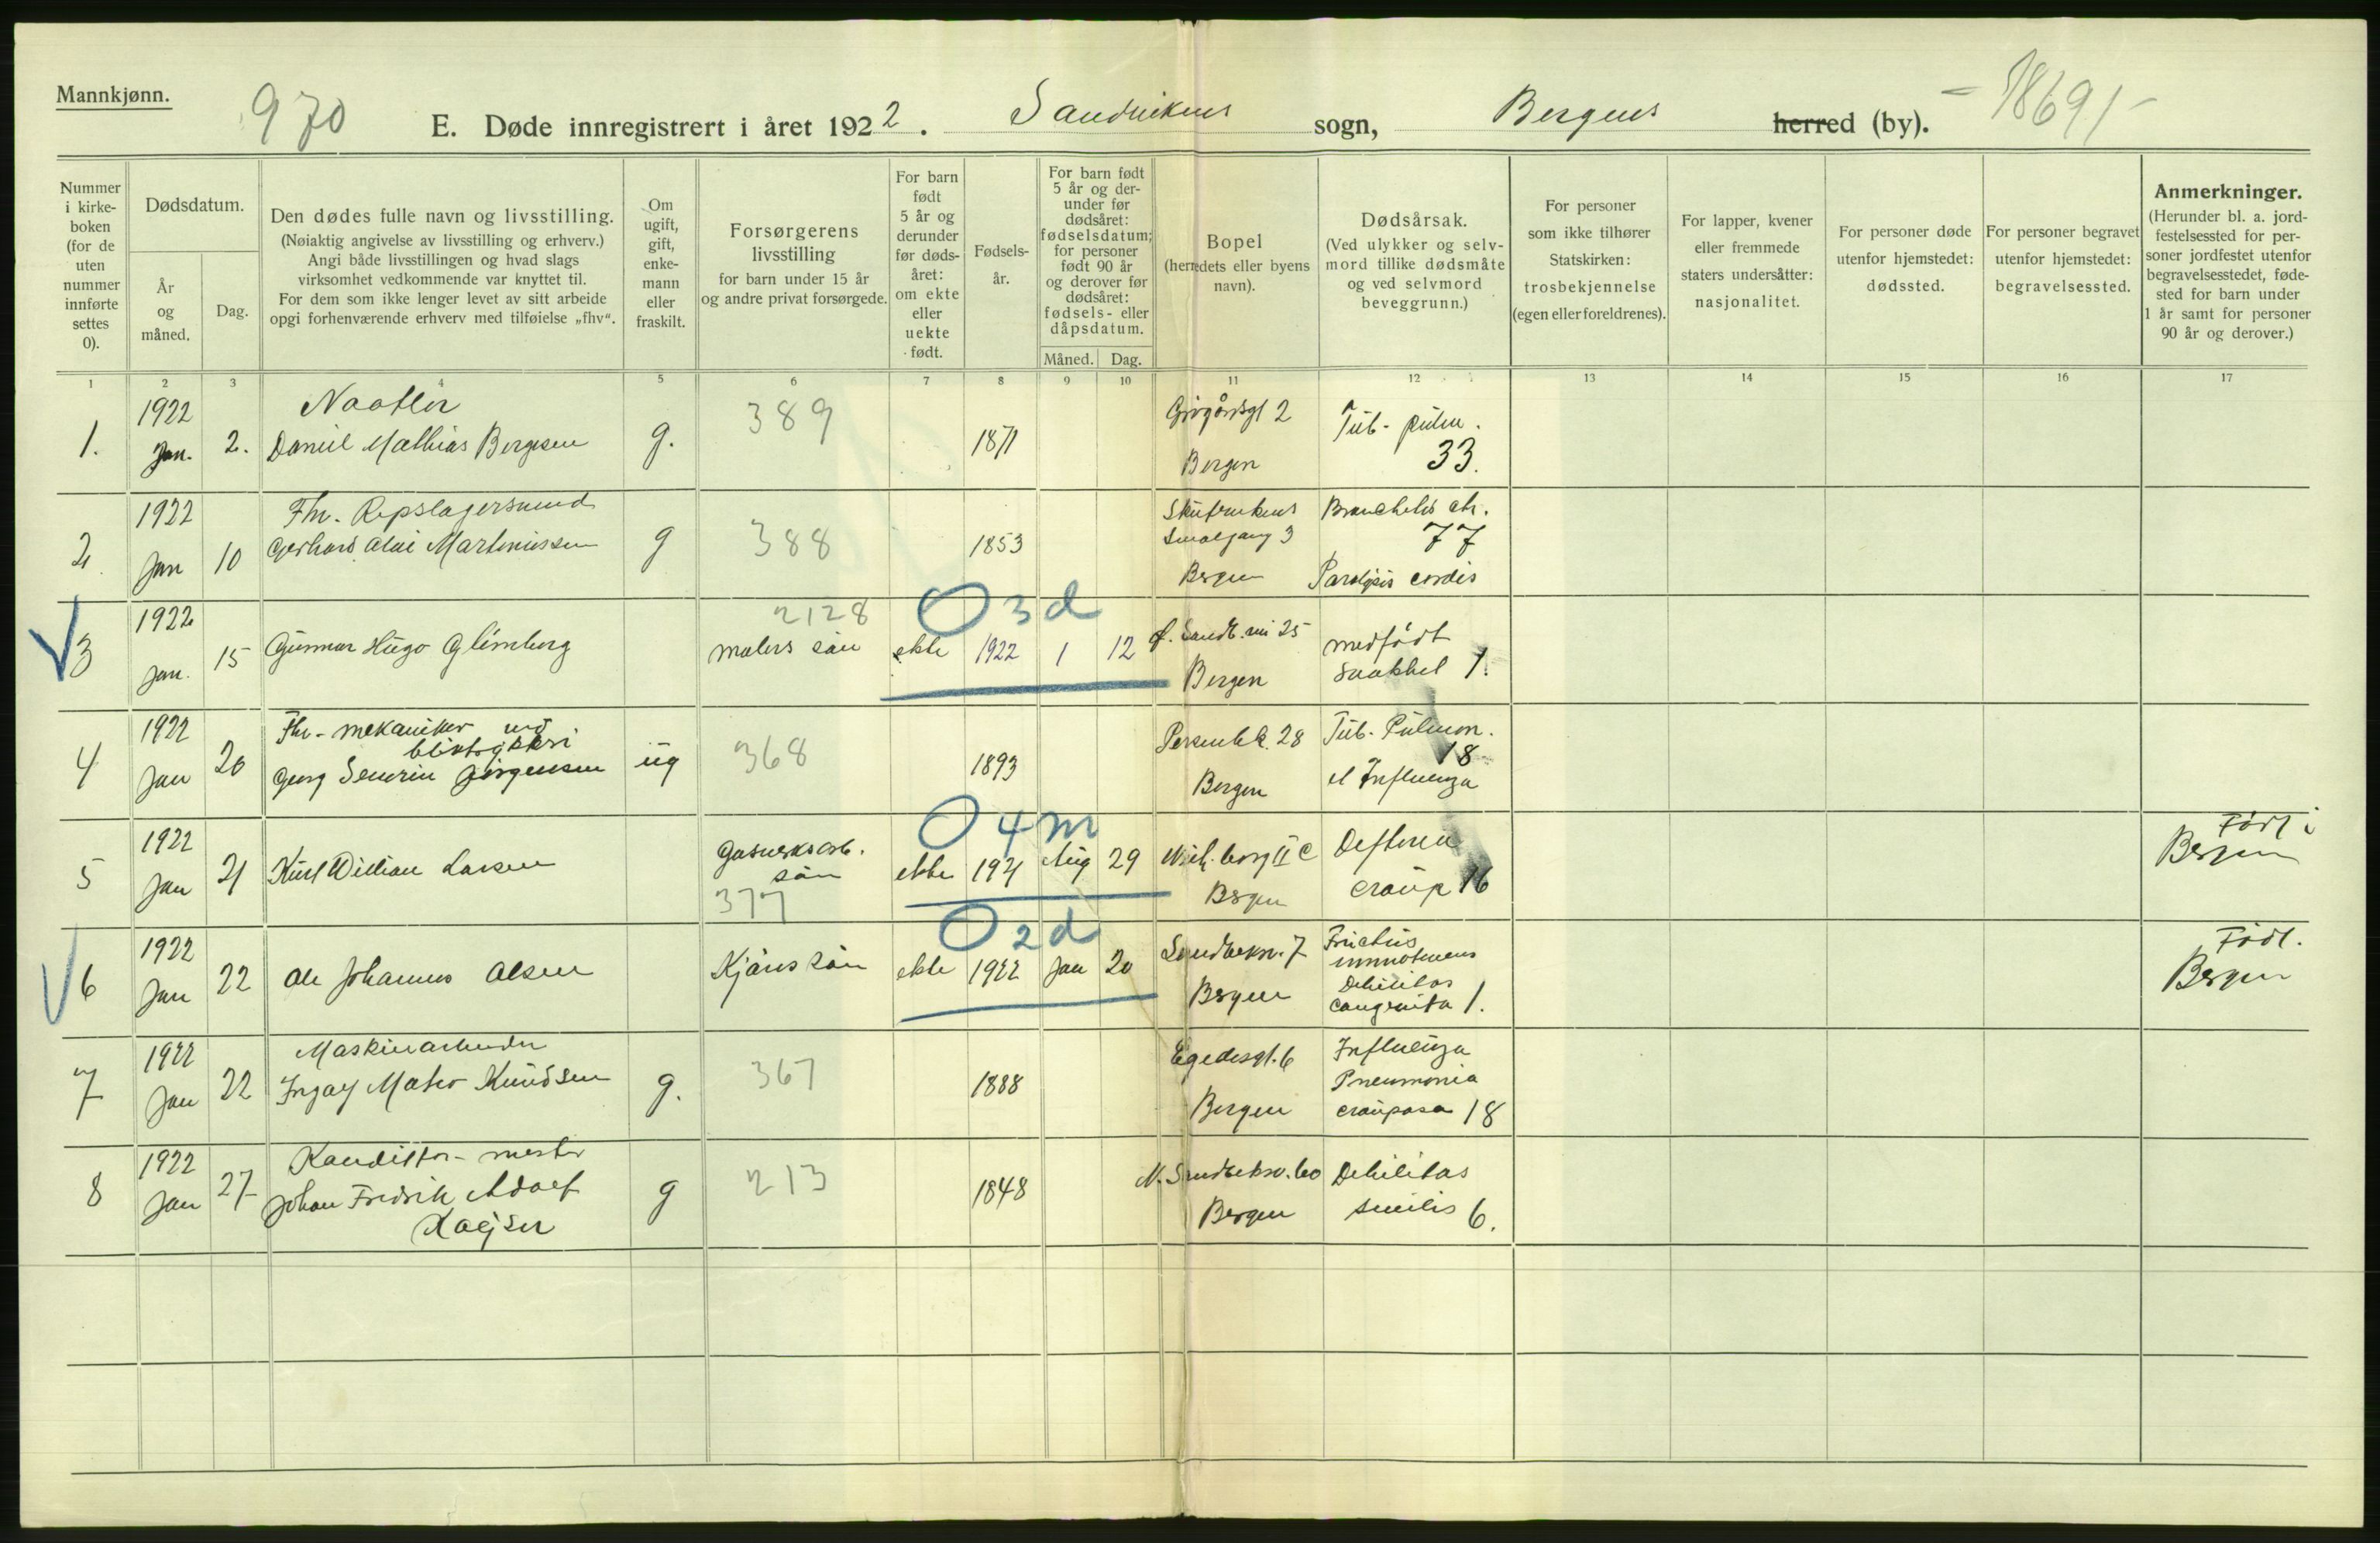 Mannkjønn.
970
E. Døde innregistrert i året 1922. Sandvikens sogn, Bergens herred (by). - 18691 -
Nummer i kirke- boken (for de uten nummer innførte settes 0).
Dødsdatum.
År og måned.
Dag.
Den dødes fulle navn og livsstilling.
(Nøiaktig angivelse av livsstilling og erhverv.)
Angi både livsstillingen og hvad slags
virksomhet vedkommende var knyttet til.
For dem som ikke lenger levet av sitt arbeide
opgi forhenværende erhverv med tilføielse „fhv“.
Om ugift, gift, enke- mann eller fraskilt.
Forsørgerens livsstilling
for barn under 15 år
og andre privat forsørgede.
For barn født 5 år og derunder før døds- året: om ekte eller uekte født.
Fødsels- år.
For barn født 5 år og der- under før dødsåret: fødselsdatum; for personer født 90 år og derover før dødsåret: fødsels- eller dåpsdatum.
Måned.
Dag.
Bopel
(herredets eller byens navn).
Dødsårsak.
(Ved ulykker og selv- mord tillike dødsmåte og ved selvmord beveggrunn.)
For personer som ikke tilhører Statskirken: trosbekjennelse (egen eller foreldrenes).
For lapper, kvener eller fremmede staters undersåtter: nasjonalitet.
For personer døde utenfor hjemstedet: dødssted.
For personer begravet utenfor hjemstedet: begravelsessted.
Anmerkninger.
(Herunder bl. a. jord- festelsessted for per- soner jordfestet utenfor begravelsesstedet, føde- sted for barn under 1 år samt for personer 90 år og derover.)
1 2 3 4 5 6 7 8 9 10 11 12 13 14 15 16 17
1. 1922 Jan. 2. Daniel Mathias Bergesen g. 389 1871 2 Bergen Tub. pulm. 33.
2 1922 Jan 10 Fhv. Repslagersvend
Gerhard Martinussen g 388 1853 Smalgang 3 Bergen Bronchitis chr. 77 Paralysis cordis
3 1922 Jan. 15 Gunnar Hugo Glimberg 2128 malers sön ekte 1922 1 12 O 3 d 25 Bergen medfödt svakhet 1.
4 1922 Jan 20 Fhv. mekaniker ved
Georg Severin Jörgensen ug 368 1893 28 Bergen Tub. Pulmon. 18 et Influenza
5 1922 Jan 21 Kurt William Larsen Gasverksarb. sön 377 ekte 1921 Aug 29 O 4 m II C Bergen croup 16 Födt i Bergen
6 1922 Jan 22 Ole Johannes Olsen Kjörs sön ekte 1922 Jan 20 O 2 d 7 Bergen Debilitas congenita 1. Födt. Bergen
7 1922 Jan 22 Maskinarbeider
Knudsen g. 367 1888 Egedesgt. 6 Bergen Influenza Pneumonia crouposa 18
8 1922 Jan 27 Konditor-mester
Johan Fredrik Adolf
Kaejser g 213 1848 Bergen Debilitas senilis 6.